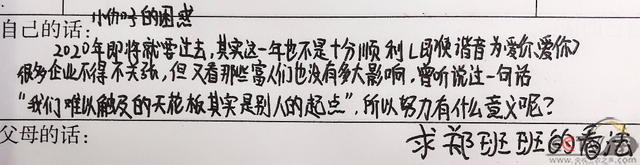 小伙子的困惑
自己的话：
2020年即将就要过去，其实这一年也不是十分顺利（即使谐音为爱你、爱你）
很多企业不得不关张，但又看那些富人们也没有多大影响，曾听说过一句话
“我们难以触及的天花板其实是别人的起点”，所以努力有什么意义呢？
父母的话：
求郑班班的看法